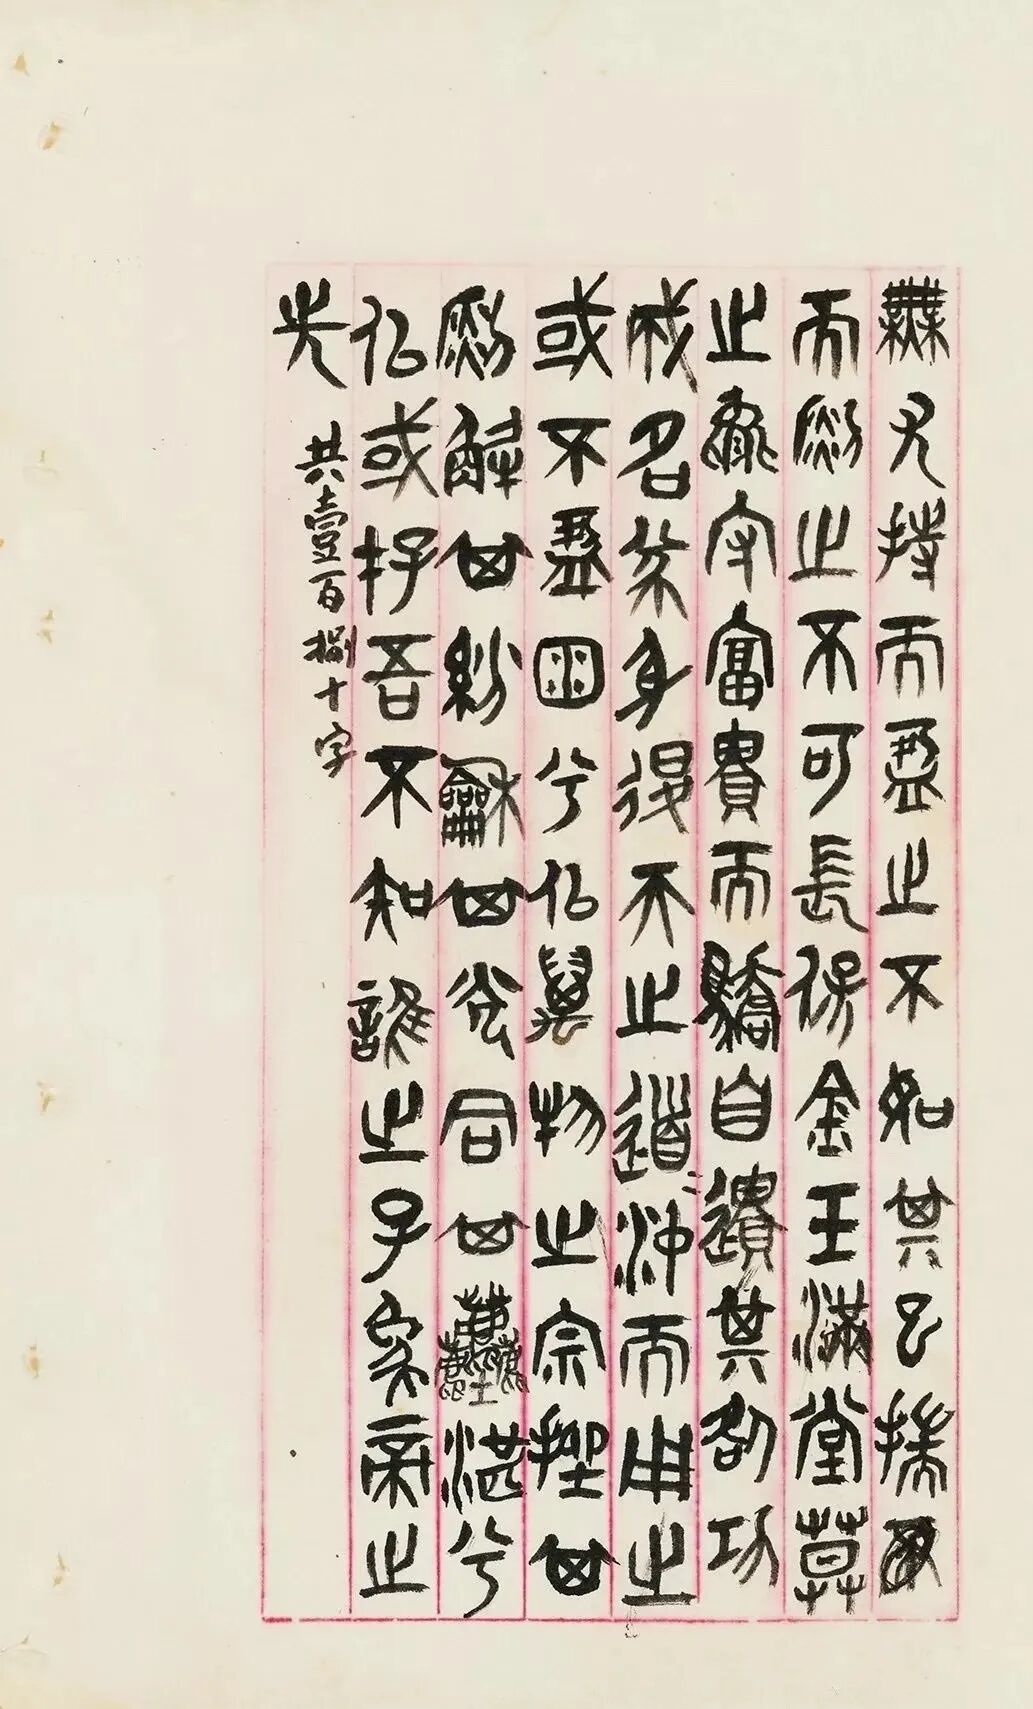 無尤持而盈之不如其已揣
而銳之不可長保金玉滿堂莫
之能守富貴而驕自遺其咎功
成名遂身退天之道〻沖而用之
或不盈淵兮似萬物之宗挫其
銳解其紛龢其光同其塵湛兮
似或存吾不知誰之子象帝之
先
共壹百捌十字